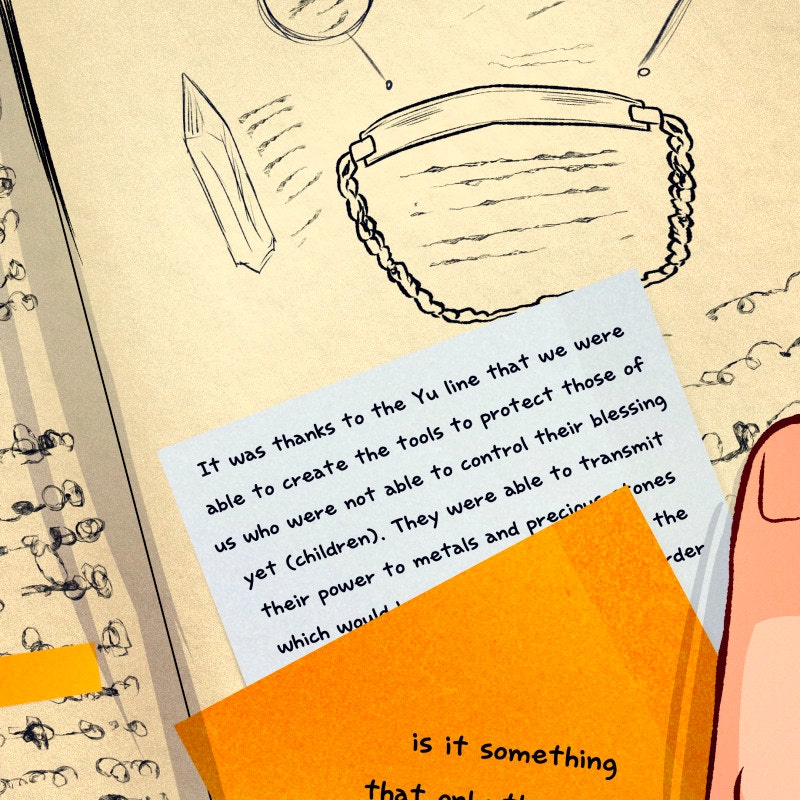 It was thanks to the Yu line that we were
able to create the tools to protect those of
us who were not able to control their blessing
yet (children). They were able to transmit
their power to metals and precious stones
which would the
is it something
that only